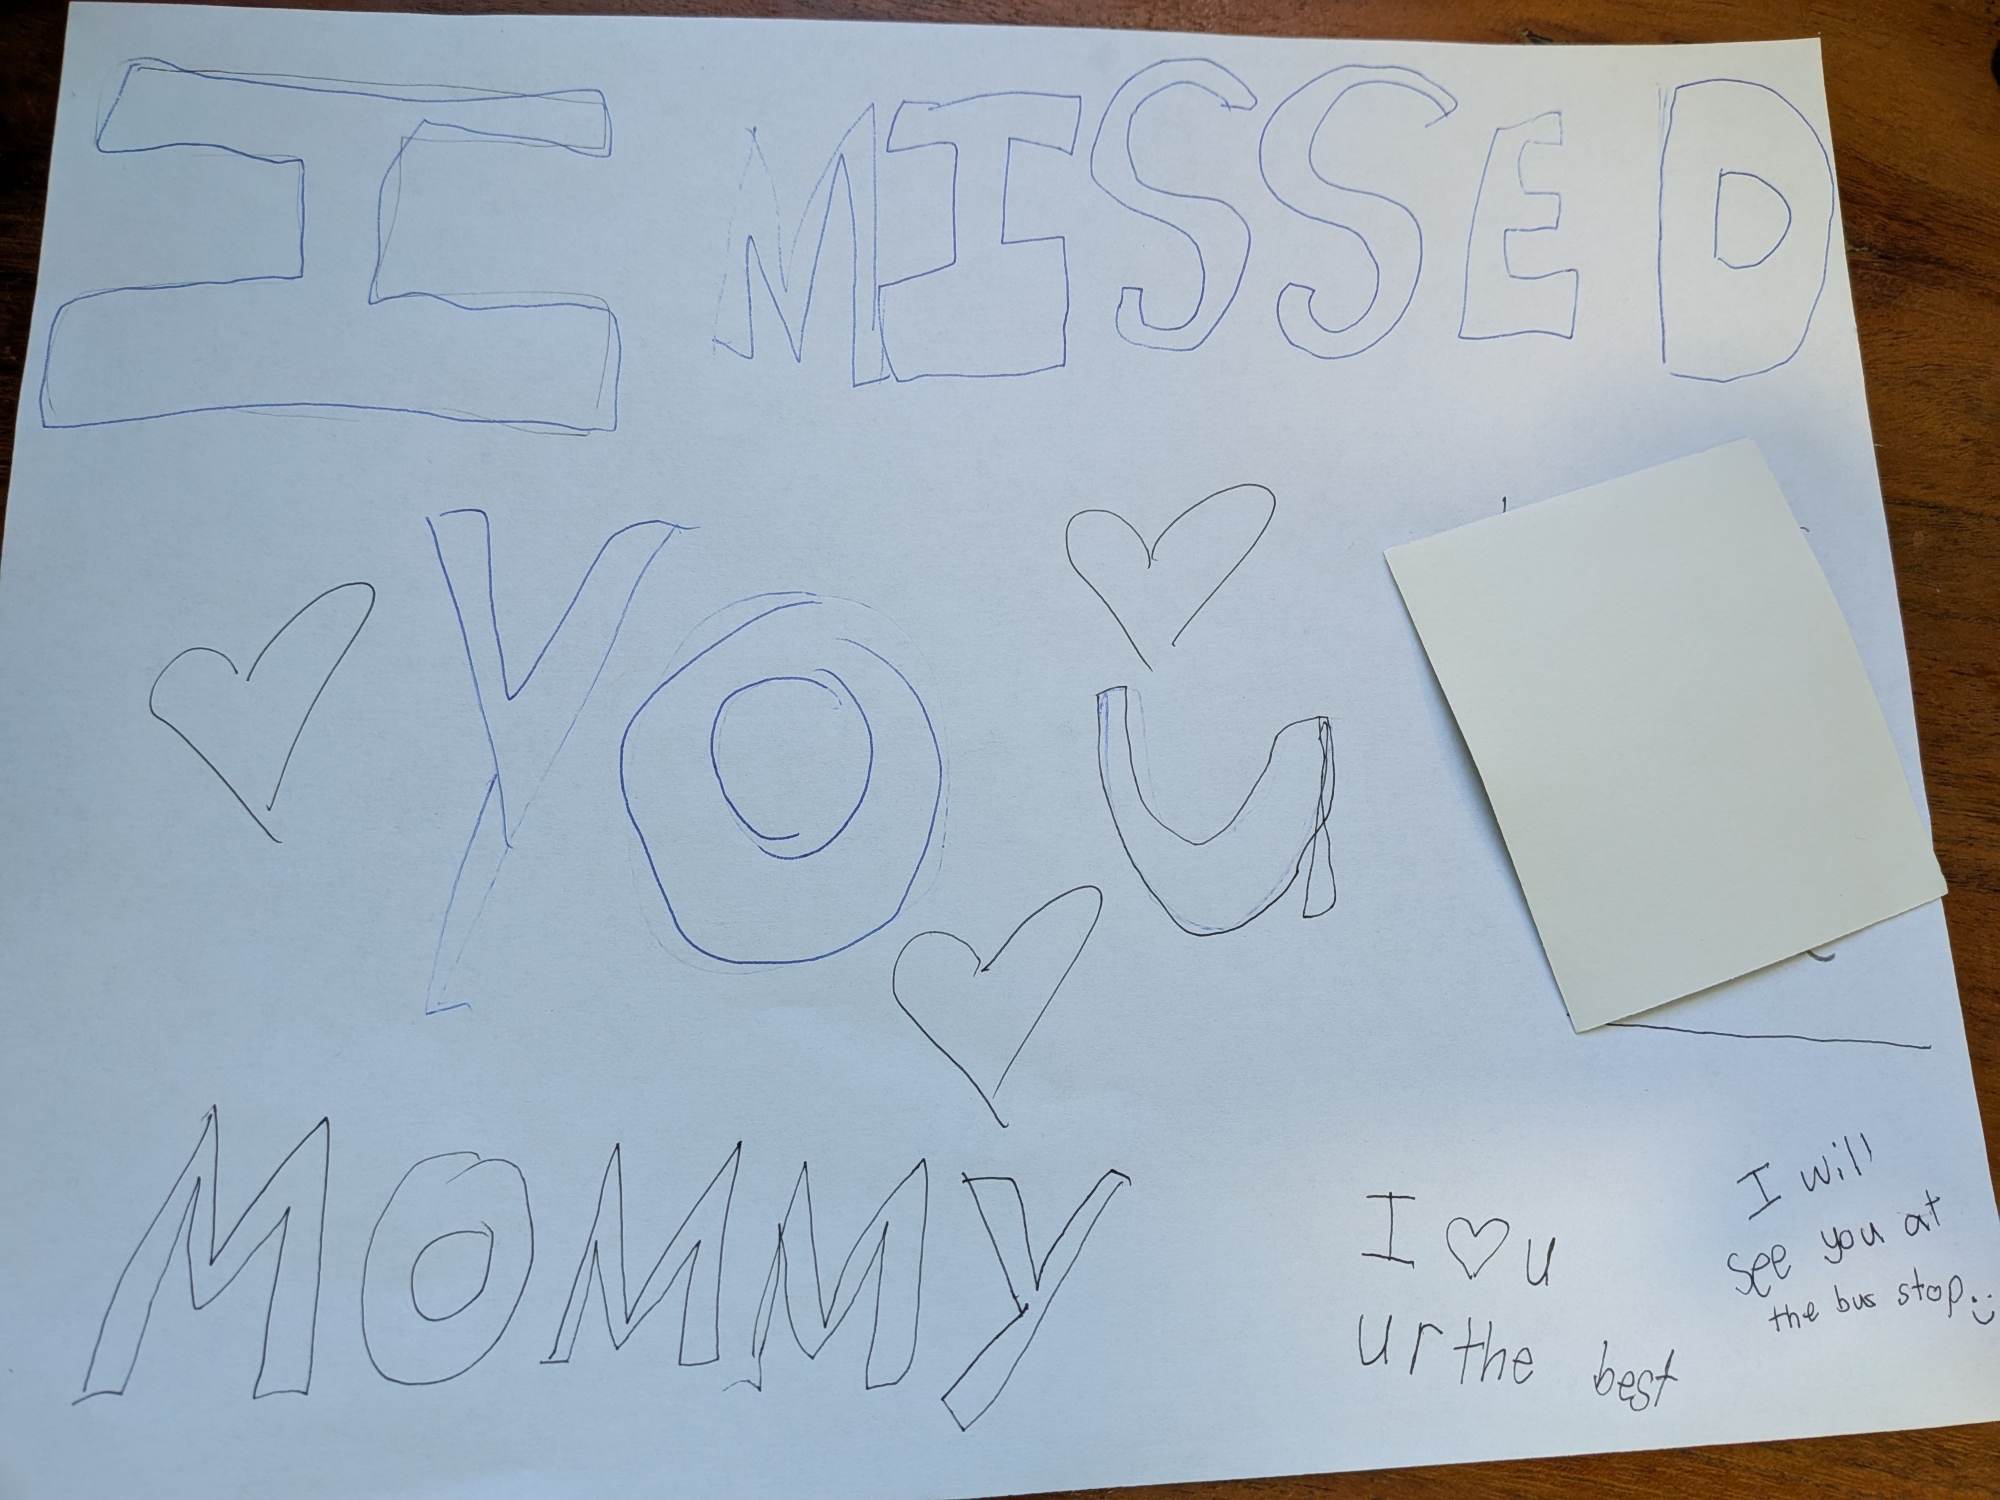 I MISSED
YOu
MOMMY
I ♡ u
u r the best
I will
see you at
the bus stop :)